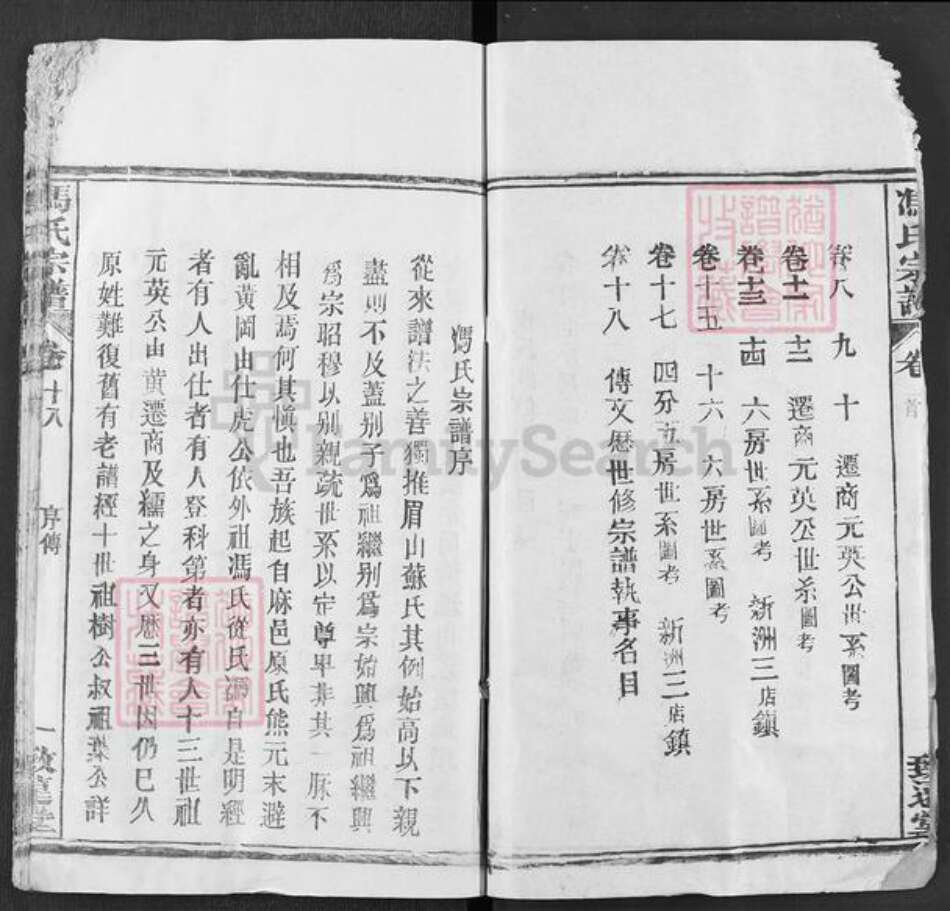 馮氏宗譜 卷 首
卷八 九 十 遷商元英公世系圖考
卷十一 十二 遷商元英公世系圖考
卷十三 十四 六房世系圖考 新洲三店鎮
卷十五 十六 六房世系圖考
卷十七 四分五房世系圖考 新洲三店鎮
卷十八 傳文歷世修宗譜執事名目
馮氏宗譜序
從來譜法之善獨推眉山蘇氏其例始高以下親
盡則不及蓋别子爲祖繼别爲宗始興爲祖繼興
爲宗昭穆以别親疏世系以定尊卑非其一脈不
相及焉何其愼也吾族起自麻邑原氏熊元末避
亂黃岡由仕虎公依外祖馮氏從氏馮自是明經
者有人出仕者有人登科第者亦有人十三世祖
元英公由黃遷商及繻之身又歷三世因仍已久
原姓難復舊有老譜經十世祖樹公叔祖葉公詳
馮氏宗譜 卷十八 序傳 一
FamilySearch